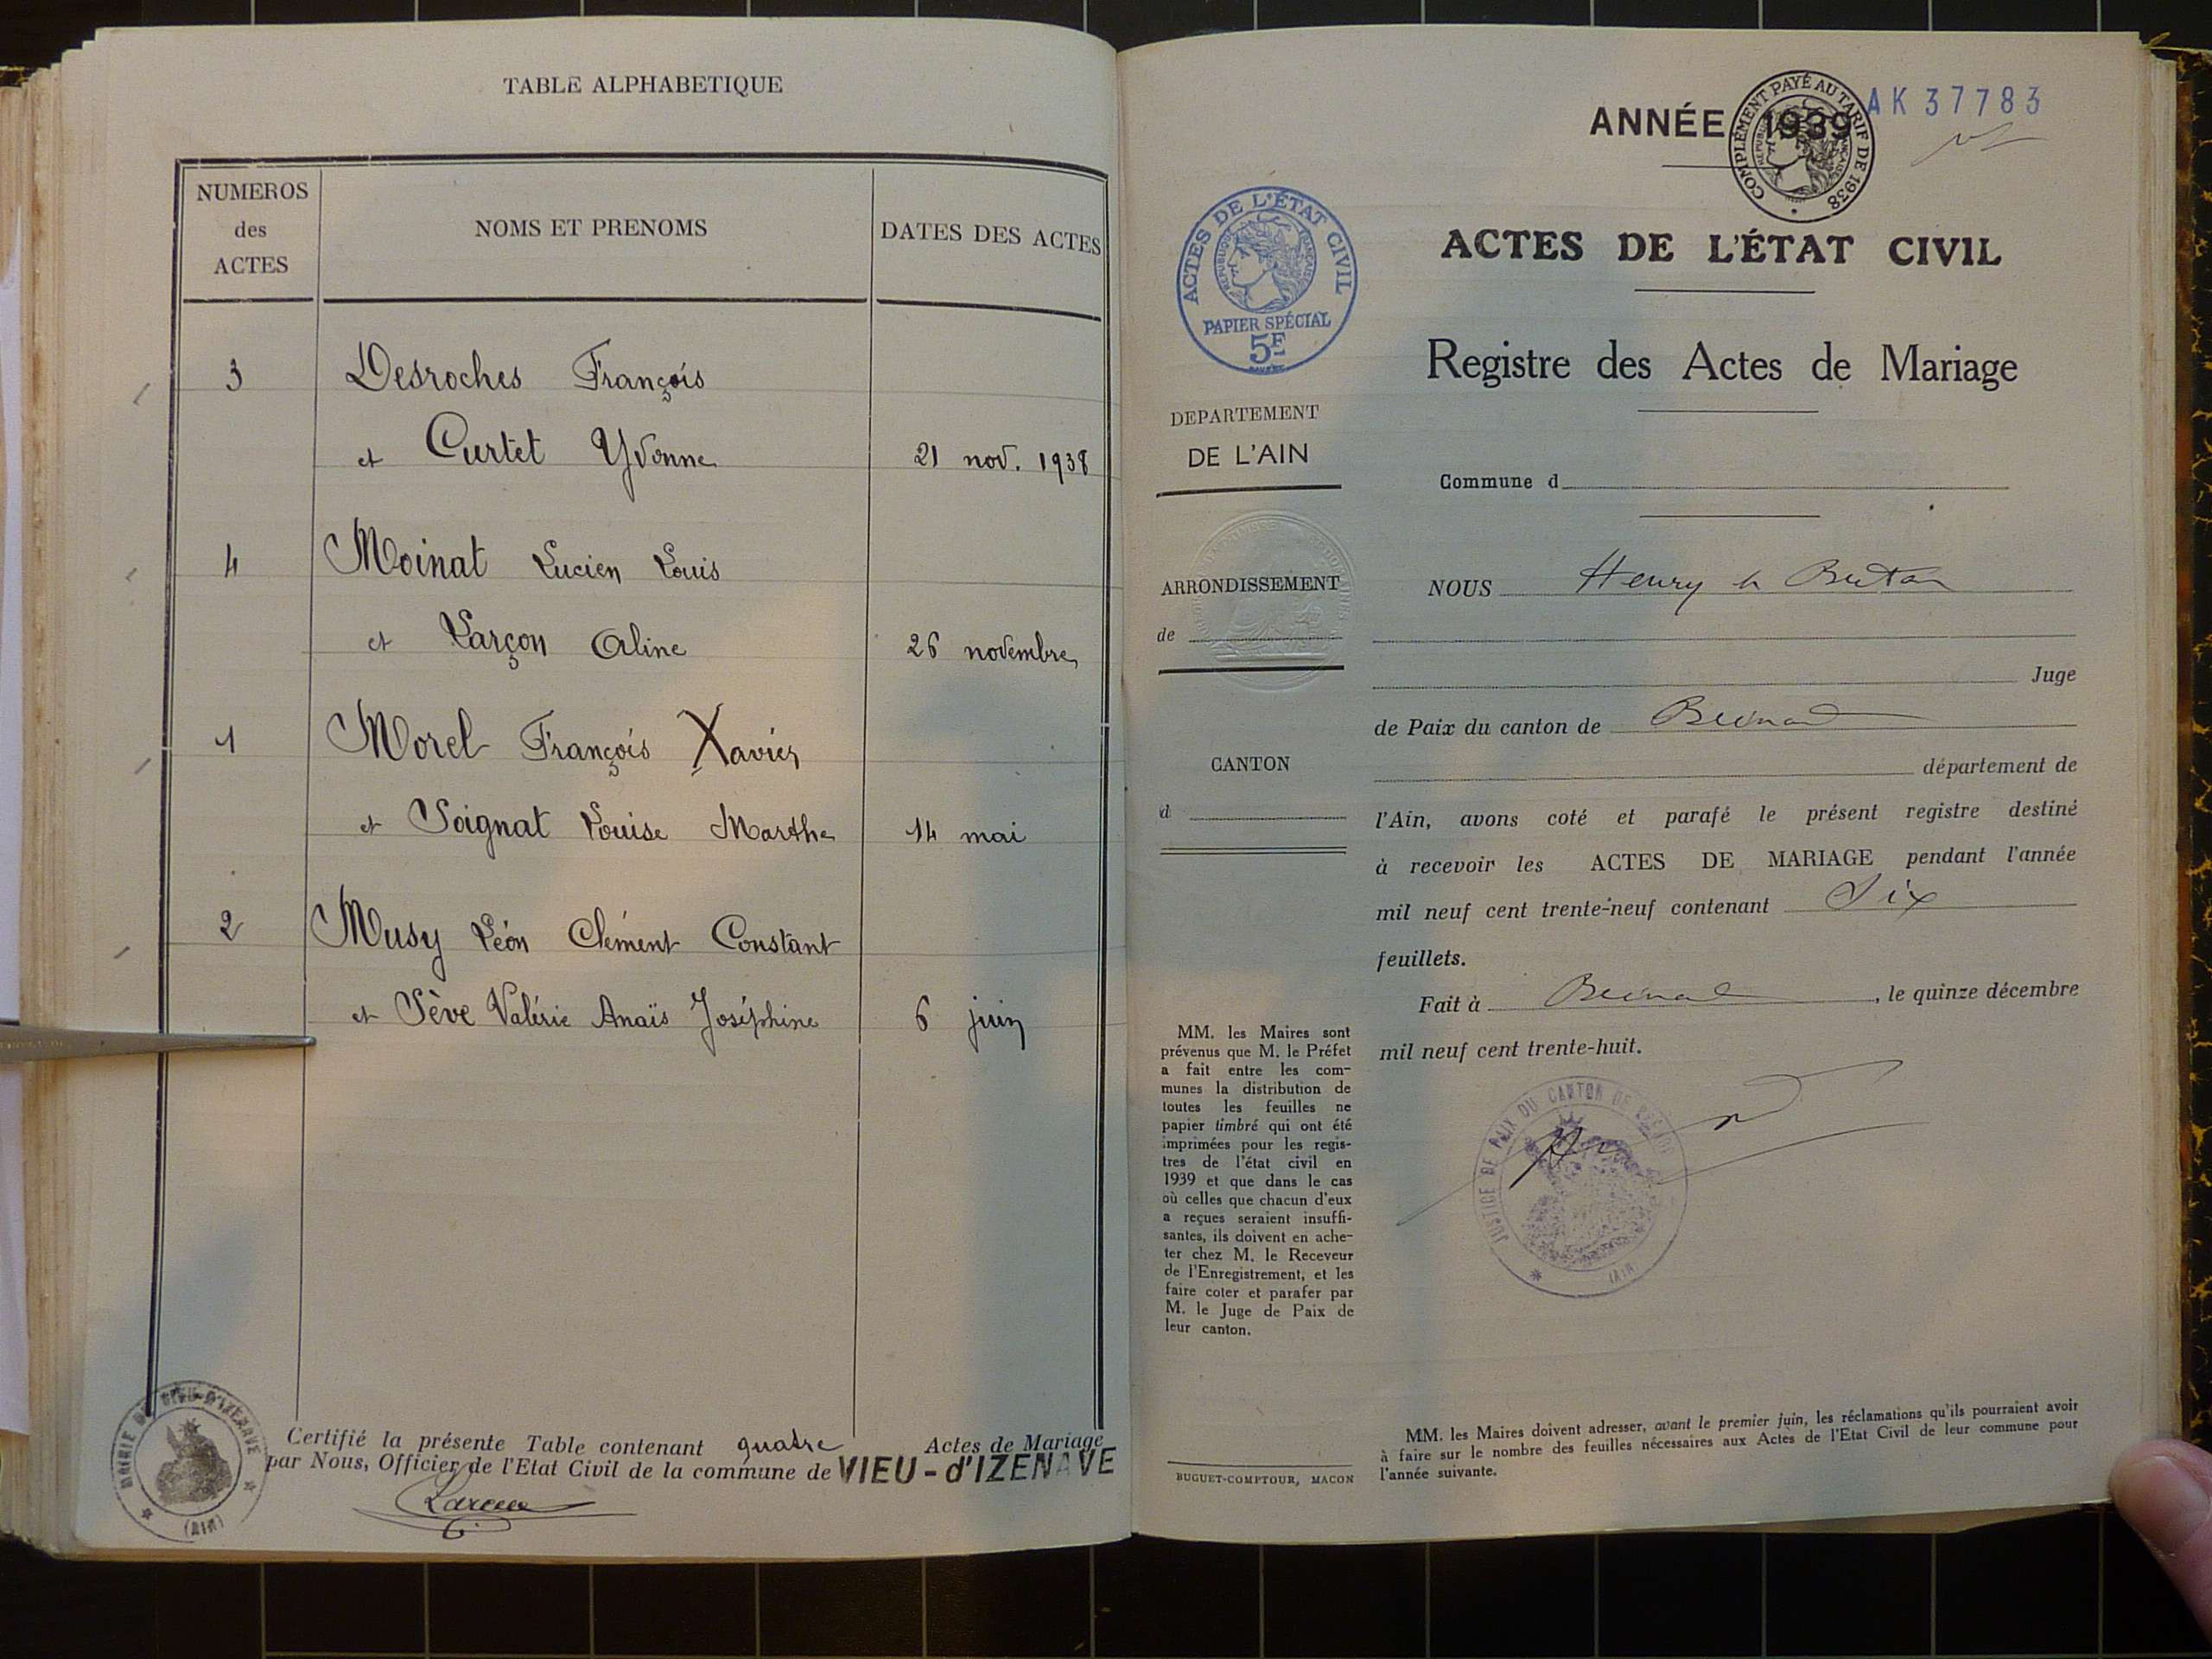 TABLE ALPHABETIQUE
NUMEROS
des
ACTES
NOMS ET PRENOMS
DATES DES ACTES
3 Desroches François
et Curtet Yvonne 21 nov. 1938
4 Moinat Lucien Louis
et Larçon Aline 26 novembre
1 Morel François Xavier
et Soignat Louise Marthe 14 mai
2 Musy Léon Clément Constant
et Sève Valérie Anaïs Joséphine 6 juin
Certifié la présente Table contenant quatre Actes de Mariage
par Nous, Officier de l'Etat Civil de la commune de VIEU-d'IZENAVE
MAIRIE DE VIEU-D'IZENAVE
(AIN)
ANNÉE 1939
COMPLÉMENT PAYÉ AU TARIF DE 1938
AK 37783
ACTES DE L'ÉTAT CIVIL
REPUBLIQUE FRANÇAISE
PAPIER SPÉCIAL
5F
ACTES DE L'ÉTAT CIVIL
Registre des Actes de Mariage
DEPARTEMENT
DE L'AIN
Commune d
ARRONDISSEMENT
de
CANTON
d
NOUS Henry
Juge
de Paix du canton de
département de
l'Ain, avons coté et parafé le présent registre destiné
à recevoir les ACTES DE MARIAGE pendant l'année
mil neuf cent trente-neuf contenant Six
feuillets.
Fait à , le quinze décembre
mil neuf cent trente-huit.
JUSTICE DE PAIX DU CANTON DE
(AIN)
MM. les Maires sont
prévenus que M. le Préfet
a fait entre les com-
munes la distribution de
toutes les feuilles ne
papier timbré qui ont été
imprimées pour les regis-
tres de l'état civil en
1939 et que dans le cas
où celles que chacun d'eux
a reçues seraient insuffi-
santes, ils doivent en ache-
ter chez M. le Receveur
de l'Enregistrement, et les
faire coter et parafer par
M. le Juge de Paix de
leur canton.
BUGUET-COMPTOUR, MACON
MM. les Maires doivent adresser, avant le premier juin, les réclamations qu'ils pourraient avoir
à faire sur le nombre des feuilles nécessaires aux Actes de l'Etat Civil de leur commune pour
l'année suivante.